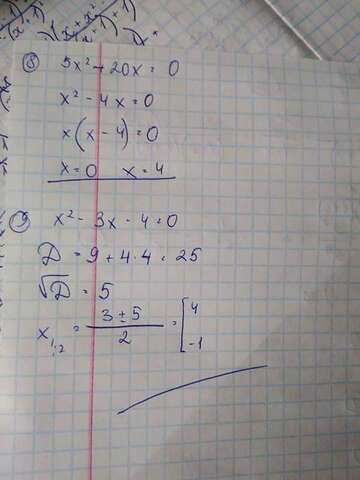 8) 5x² - 20x = 0
x² - 4x = 0
x(x - 4) = 0
x = 0 x = 4
9) x² - 3x - 4 = 0
D = 9 + 4·4 = 25
√D = 5
x₁,₂ = (3 ± 5)/2 = [4
-1